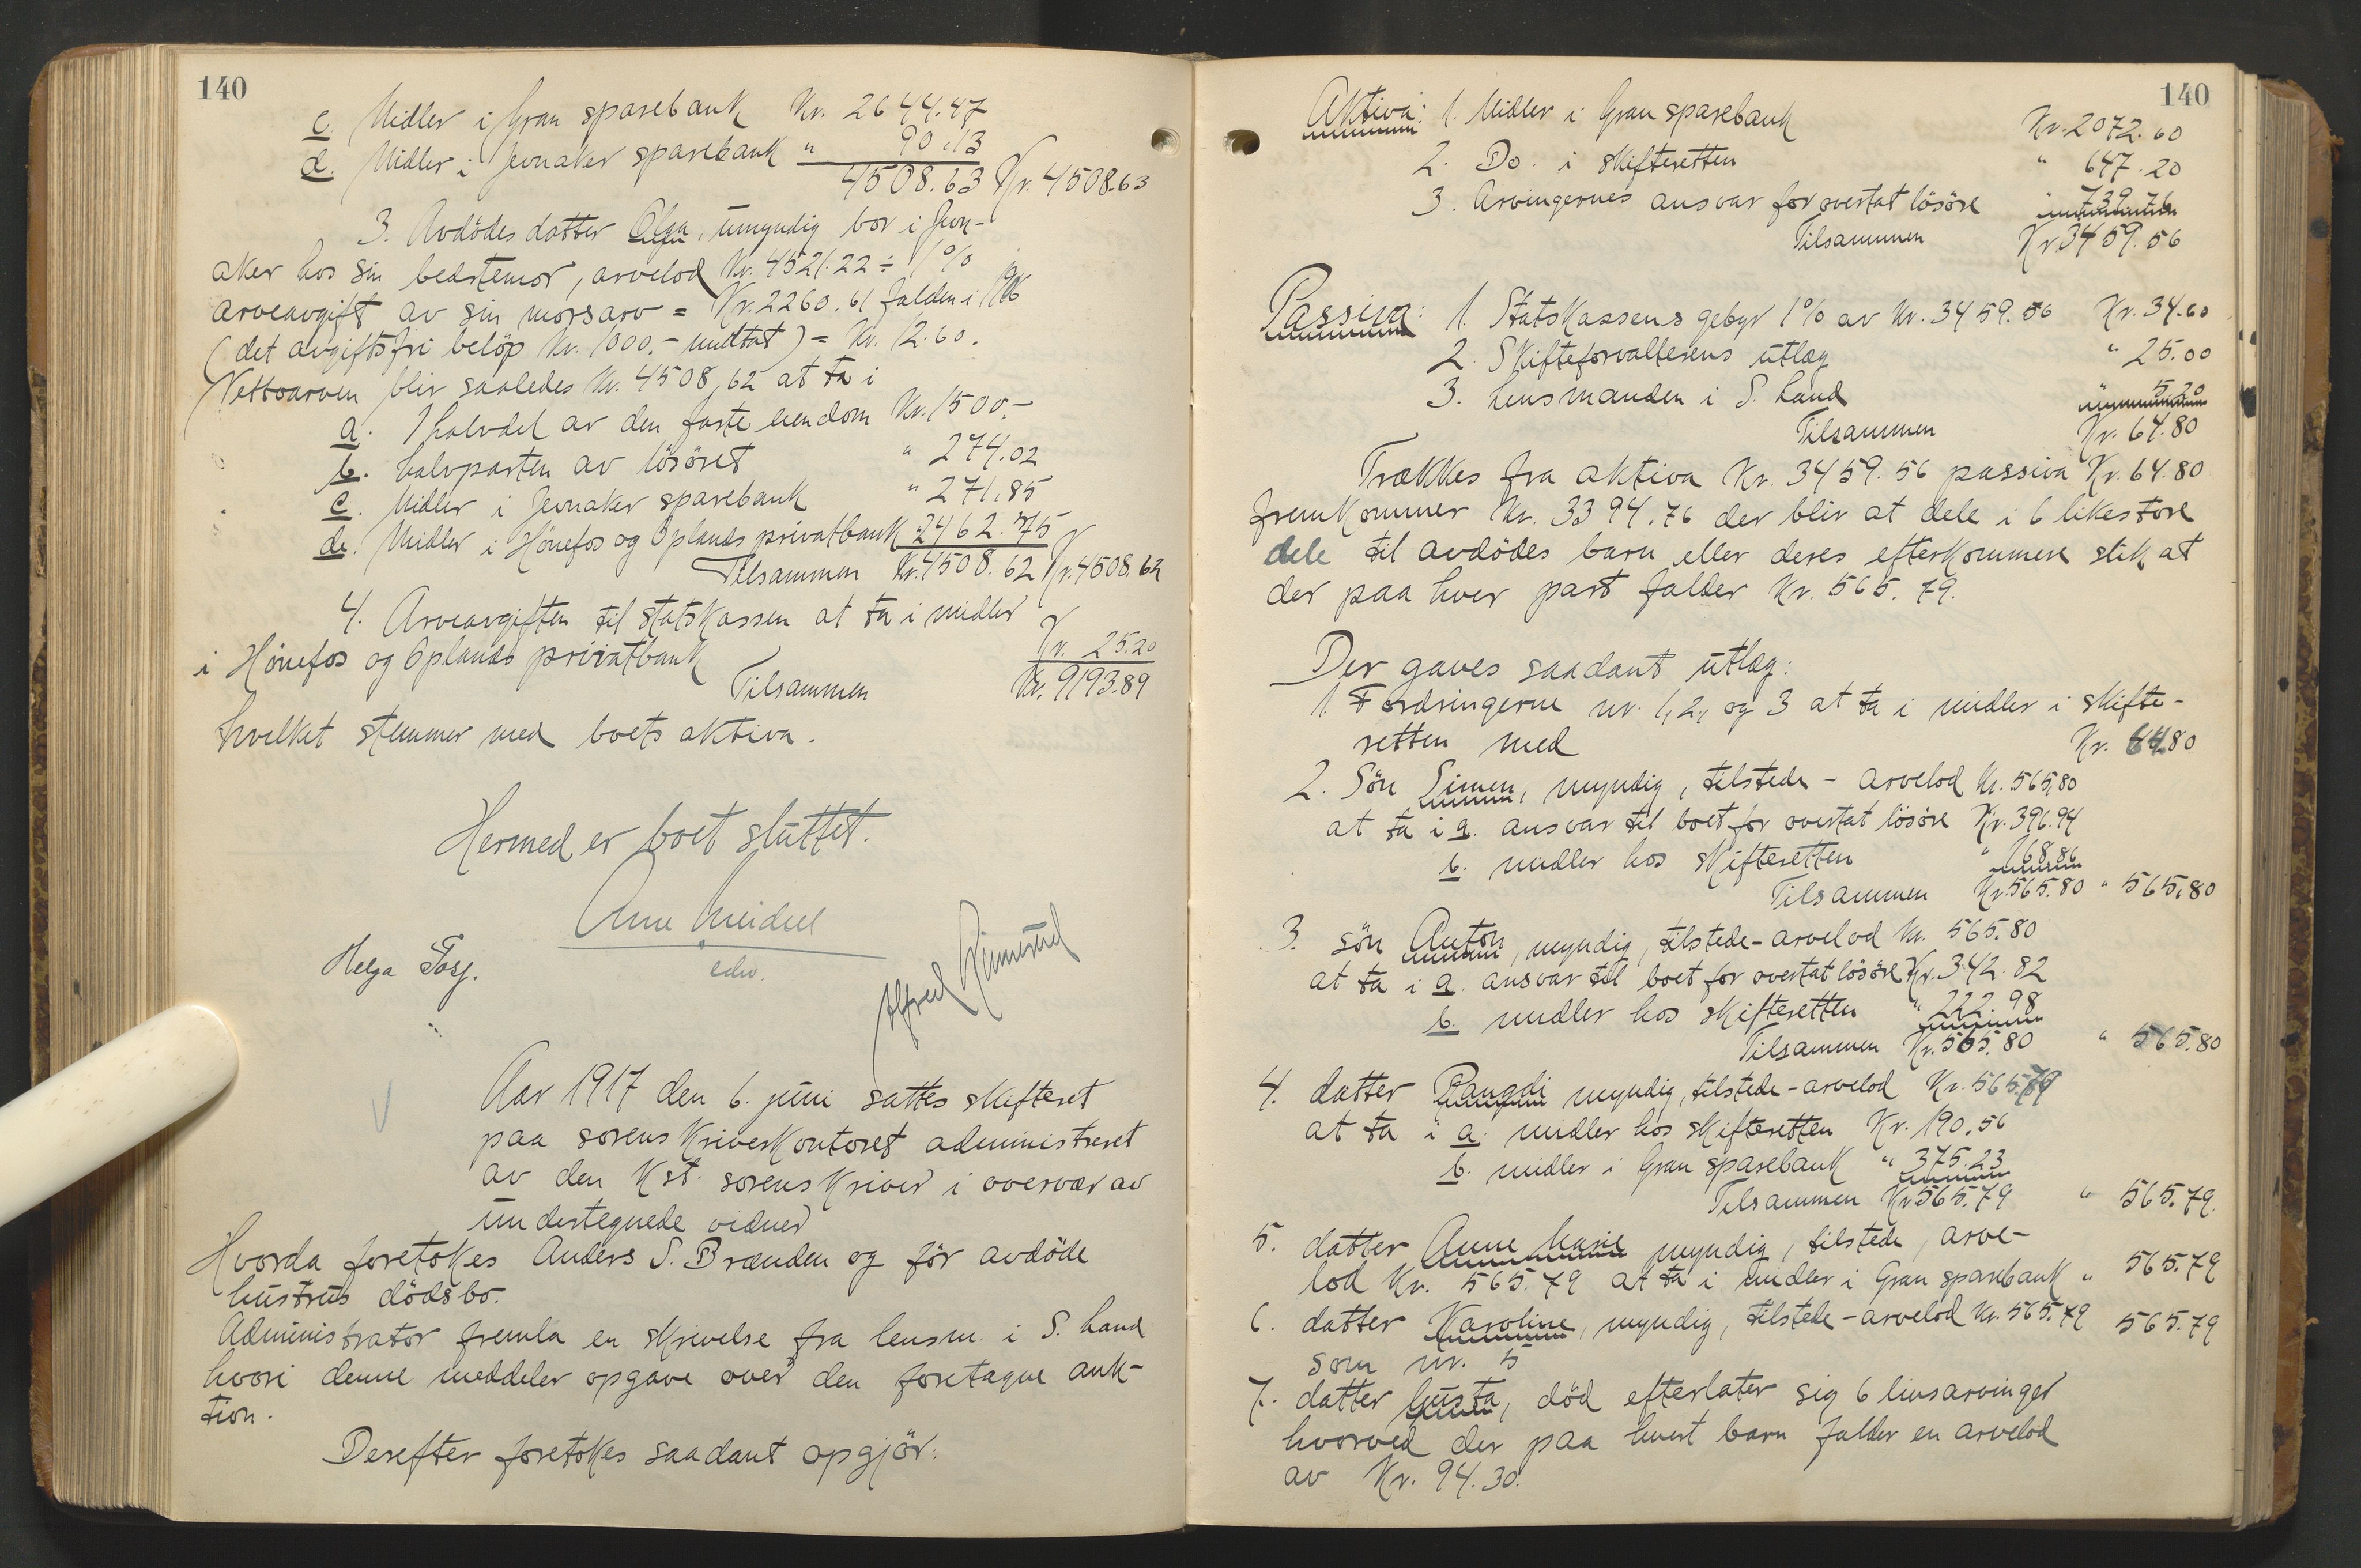 140
c. Midler i Gran sparebank Kr. 2644.47
d. Midler i Jevnaker sparebank " 90.13
4508.63 Kr. 4508.63
3. Avdödes datter Olga, umyndig bor i Jevn-
aker hos sin bedstemor, arvelod Kr. 4521.22 ÷ 1%
arveavgift av sin morsarv = Kr. 2260.61 falden i 1916
(det avgiftsfri belöp Kr. 1000.- undtat) = Kr. 12.60.
Nettoarven blir saaledes Kr. 4508,62 at ta i
a. 1 halvdel av den faste eiendom Kr. 1500.-
b. halvparten av lösöret " 274.02
c. Midler i Jevnaker sparebank " 271.85
d. Midler i Hönefos og Oplands privatbank " 2462.75
Tilsammen Kr. 4508.62 Kr. 4508.62
4. Arveavgiften til statskassen at ta i midler
i Hönefos og Oplands privatbank Kr. 25.20
Tilsammen Kr. 9193.89
hvilket stemmer med boets aktiva.
Hermed er boet sluttet.
Anne
edv.
Helga
Alfred
Aar 1917 den 6. juni sattes skifteret
paa sorenskriverkontoret administreret
av den Kst. sorenskriver i overvær av
undertegnede vidner
Hvorda foretokes Anders S. Brænden og för avdöde
hustrus dödsbo.
Administrator fremla en skrivelse fra lensm. i S. Land
hvori denne meddeler opgave over den foretagne auk-
tion.
Derefter foretokes saadant opgjör:
140
Aktiva: 1. Midler i Gran sparebank Kr. 2072.60
2. Do. i skifteretten " 647.20
3. Arvingernes ansvar for overtat lösöre " 739.76
Tilsammen Kr 3459.56
Passiva: 1. Statskassens gebyr 1% av Kr. 3459.56 Kr. 34.60
2. Skifteforvalterens utlæg " 25.00
3. Lensmanden i S. Land " 5.20
Tilsammen Kr. 64.80
Trækkes fra aktiva Kr. 3459.56 passiva Kr. 64.80
fremkommer Kr. 3394.76 der blir at dele i 6 likestore
dele til avdödes barn eller deres efterkommere slik at
der paa hver part falder Kr. 565.79.
Der gaves saadant utlæg:
1. Fordringerne nr. 1, 2, og 3 at ta i midler i skifte-
retten med Kr. 64.80
2. Sön Simen, myndig, tilstede - arvelod Kr. 565,80
at ta i a. ansvar til boet for overtat lösöre Kr. 396.94
b. midler hos skifteretten " 168.86
Tilsammen Kr. 565.80 " 565,80
3. sön Anton, myndig, tilstede - arvelod Kr. 565.80
at ta i a. ansvar til boet for overtat lösöre Kr. 342.82
b. midler hos skifteretten " 222.98
Tilsammen Kr. 565.80 " 565.80
4. datter Rangdi myndig, tilstede - arvelod Kr. 565.79
at ta i a. midler hos skifteretten Kr. 190.56
b. midler i Gran sparebank " 375.23
Tilsammen Kr 565.79 " 565.79.
5. datter Anne Marie myndig, tilstede, arve-
lod Kr. 565.79 at ta i midler i Gran sparebank " 565.79
6. datter Karoline, myndig, tilstede - arvelod Kr. 565.79 565.79
som nr. 5
7. datter Gusta, död efterlater sig 6 livsarvinger
hvorved der paa hvert barn falder en arvelod
av Kr. 94.30.